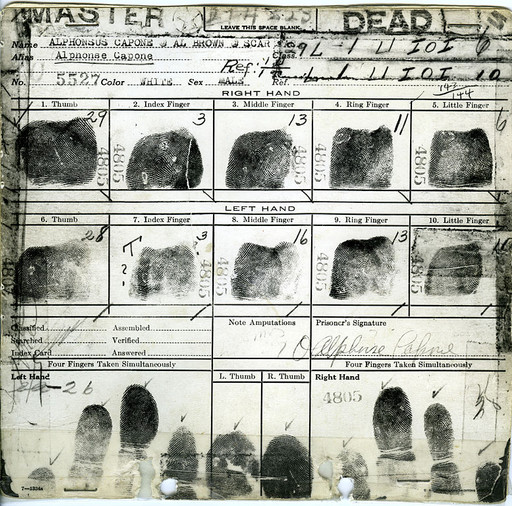 MASTER
DEAD
LEAVE THIS SPACE BLANK
Name ALPHONSUS CAPONE AL BROWN SCAR
Class.
9 L 1 U IOI 6
Alias Alphonse Capone
Ref. 1 1 U IOI 10
No. 5527 Color WHITE Sex MALE Ref.
144
RIGHT HAND
1. Thumb 2. Index Finger 3. Middle Finger 4. Ring Finger 5. Little Finger
29 3 13 11 6
4805 4805 4805 4805 4805
LEFT HAND
6. Thumb 7. Index Finger 8. Middle Finger 9. Ring Finger 10. Little Finger
28 3 16 13 10
T
?
4805 4805 4805 4805 4805
Classified Assembled
Note Amputations
Prisoner's Signature
Searched Verified
Index Card Answered
Alphonse Capone
Four Fingers Taken Simultaneously
Four Fingers Taken Simultaneously
Left Hand
L. Thumb R. Thumb
Right Hand
26
4805